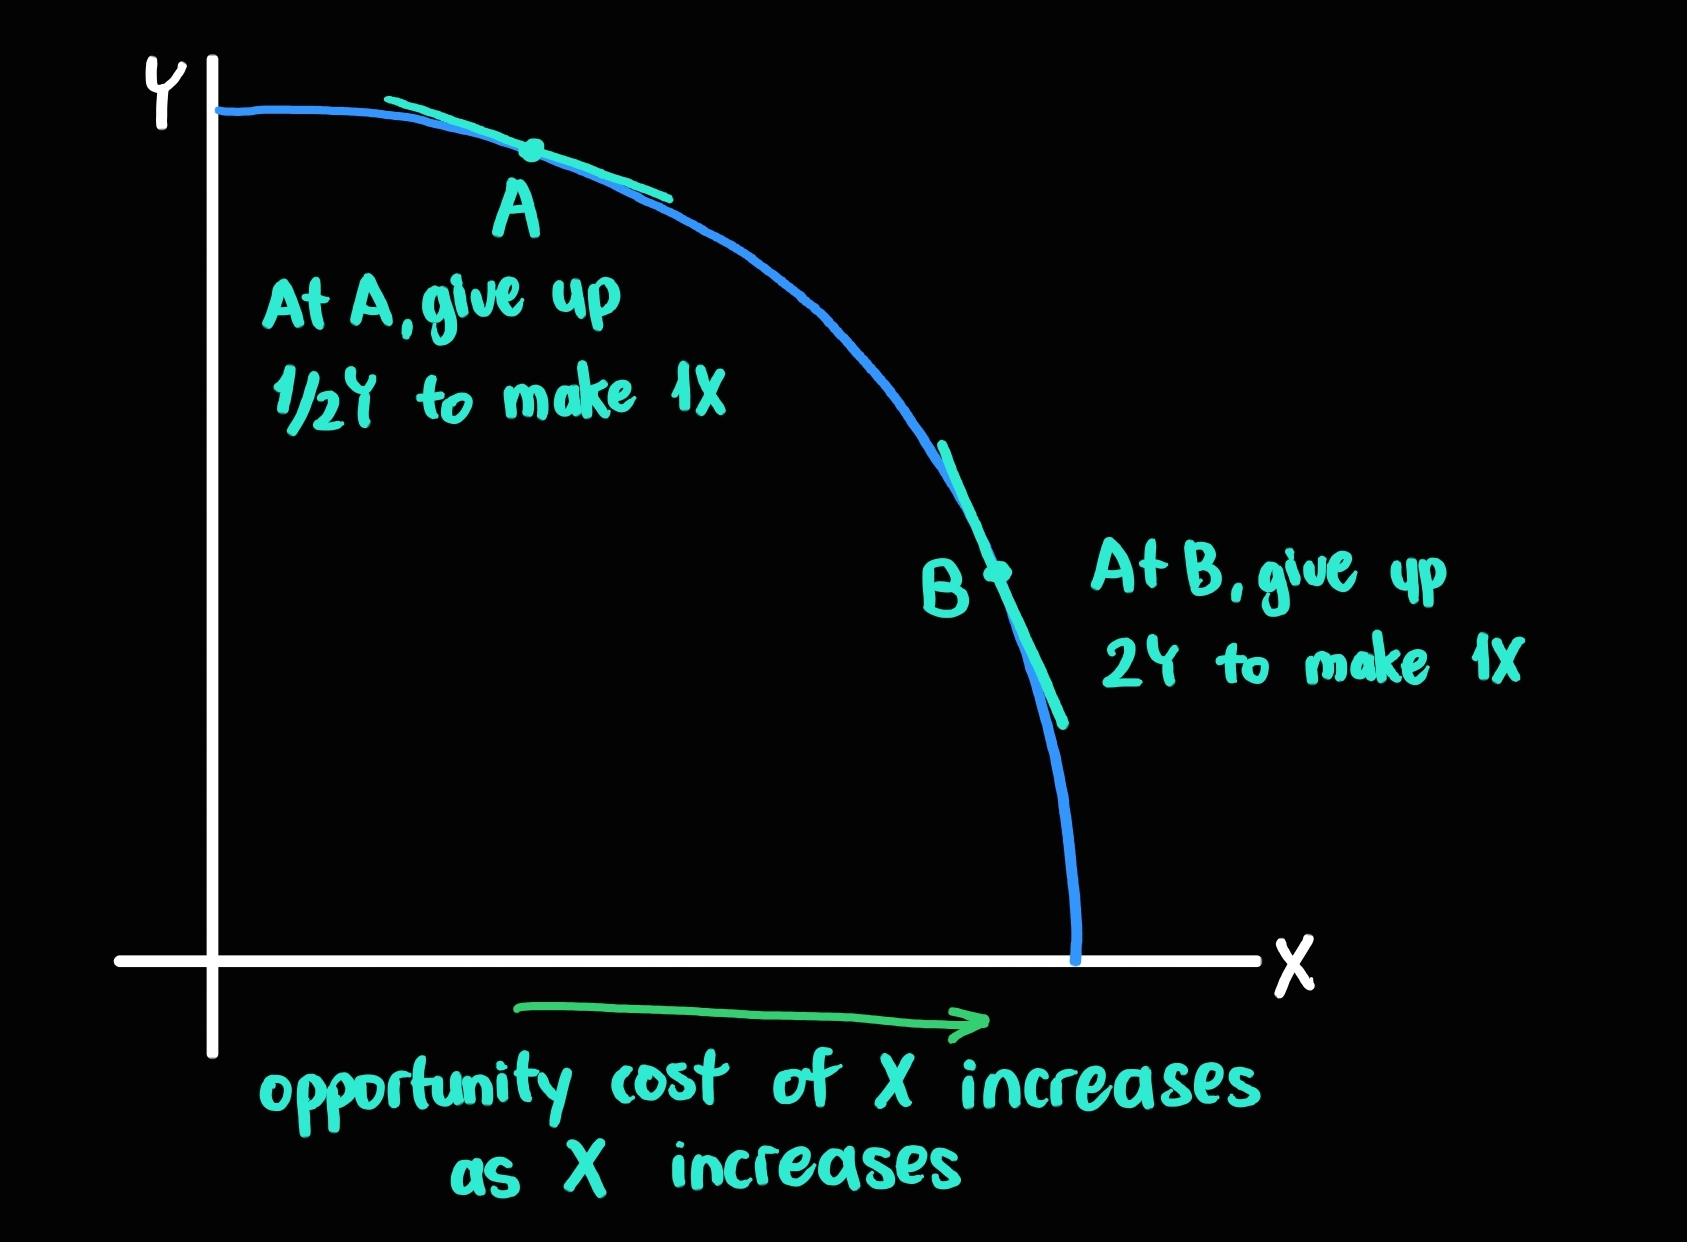 Y
A
At A, give up
1/2Y to make 1X
B
At B, give up
2Y to make 1X
X
opportunity cost of X increases
as X increases